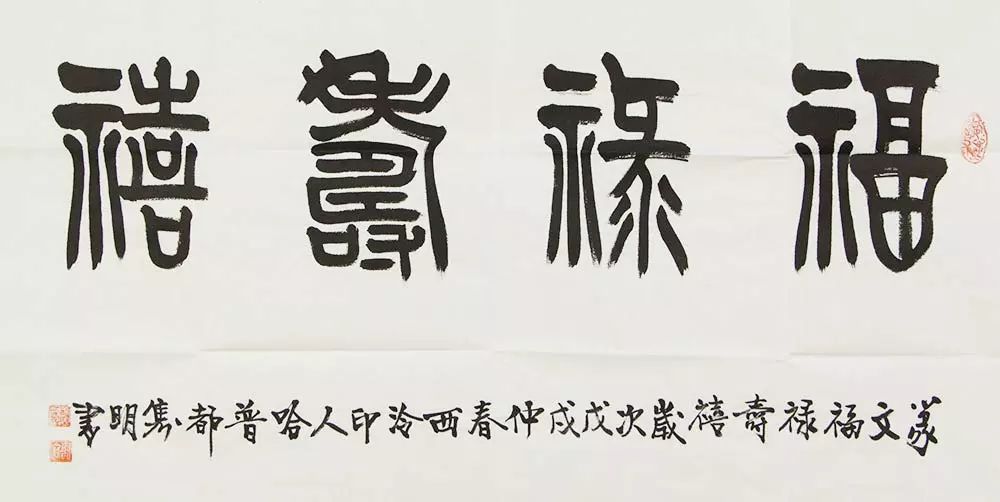 福祿壽禧
篆文福祿壽禧歲次戊戌仲春西泠印人哈普都雋明書